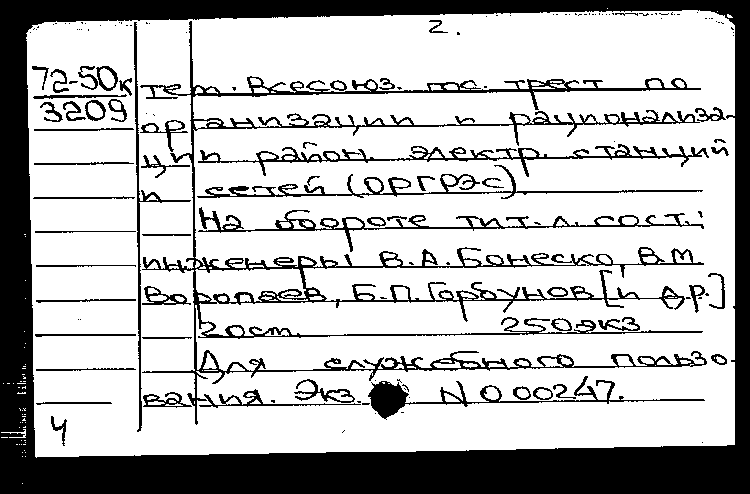 2.
72-50к
3209
тем. Всесоюз. гос. трест по
организации и рационализа-
ции район. электр. станций
и сетей (ОРГРЭС).
На обороте тит. л. сост.:
инженеры В.А. Бонеско, В.М.
Воропаев, Б.П. Горбунов [и др.]
20ст. 250экз
Для служебного пользо-
вания. Экз. N 000247.
4